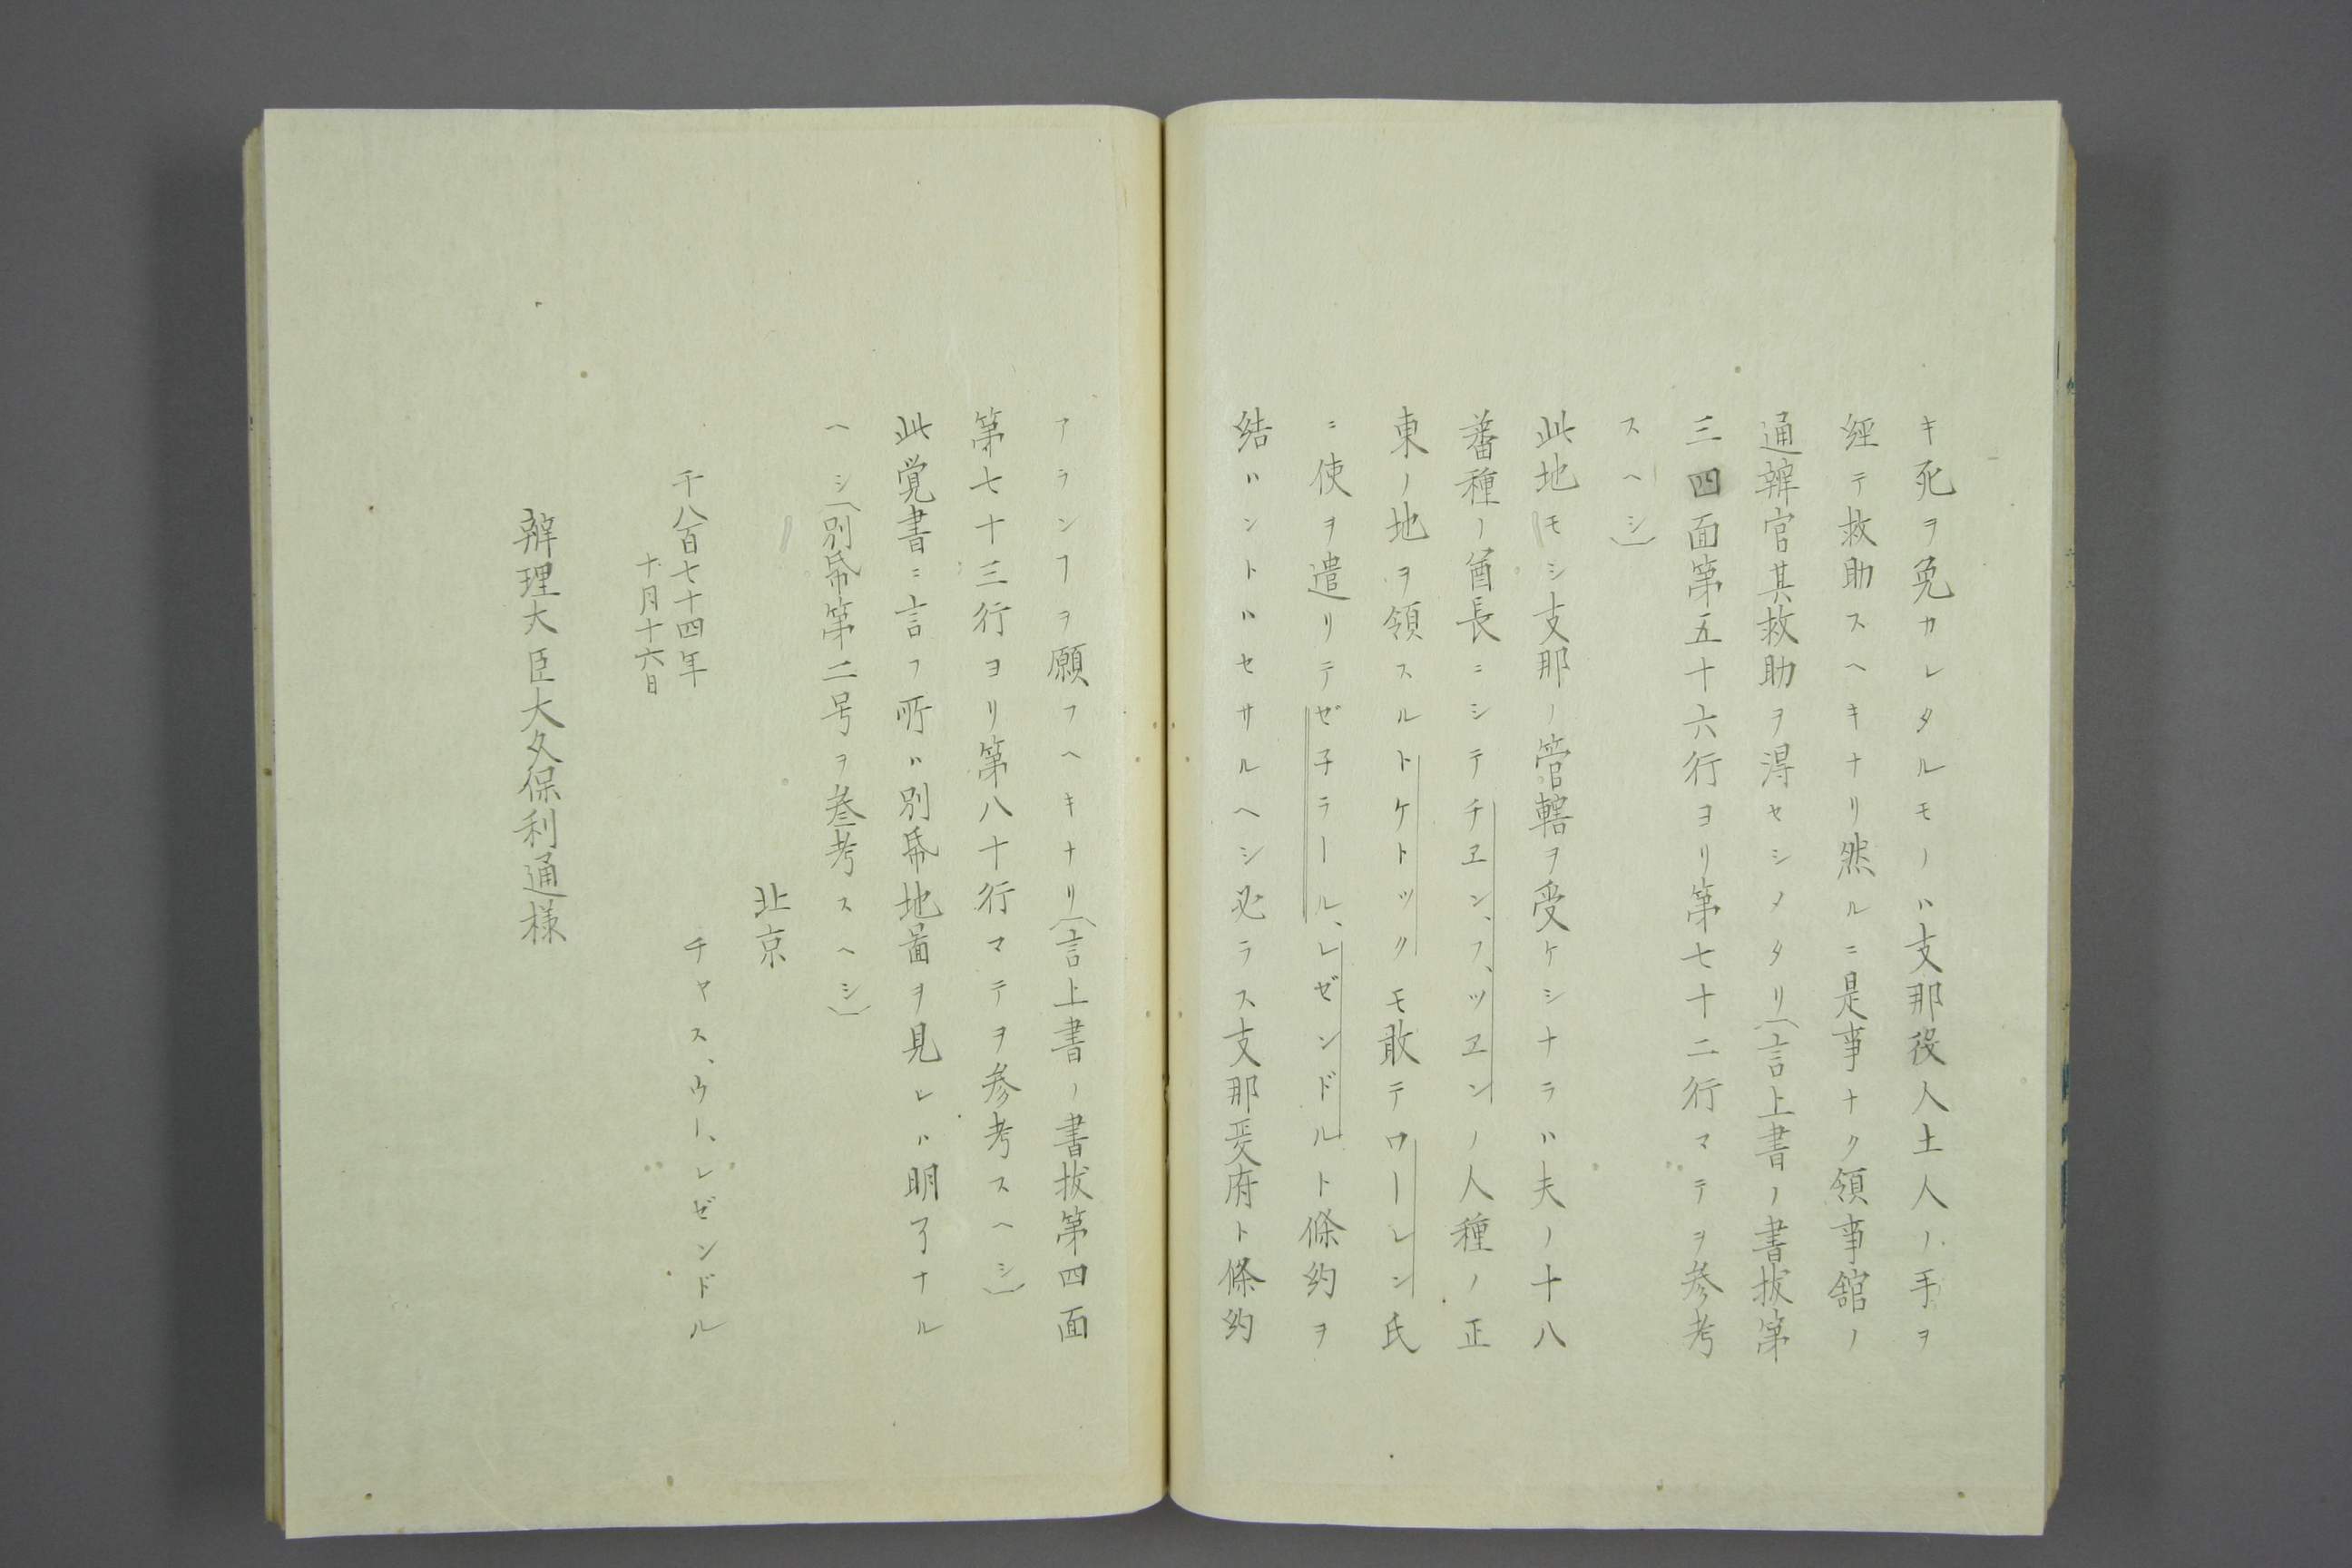 キ死ヲ免カレタルモノハ支那役人土人ノ手ヲ
経テ救助スヘキナリ然ルニ是事ナク領事舘ノ
通辨官其救助ヲ淂セシメタリ（言上書ノ書抜第
三四面第五十六行ヨリ第七十二行マテヲ参考
スヘシ）
此地モシ支那ノ管轄ヲ受ケシナラハ夫ノ十八
蕃種ノ酋長ニシテチヱン、フ、ツヱンノ人種ノ正
東ノ地ヲ領スルトケトックモ敢テローレン氏
ニ使ヲ遣リテゼ子ラール、レゼンドルト條約ヲ
結ハントハセサルヘシ必ラス支那政府ト條約
アランヿヲ願フヘキナリ（言上書ノ書抜第四面
第七十三行ヨリ第八十行マテヲ参考スヘシ）
此覚書ニ言フ所ハ別帋地啚ヲ見レハ明了ナル
ヘシ（別帋第二号ヲ叅考スヘシ）
北京
チャス、ウー、レゼンドル
千八百七十四年
十月十六日
辨理大臣大久保利通様